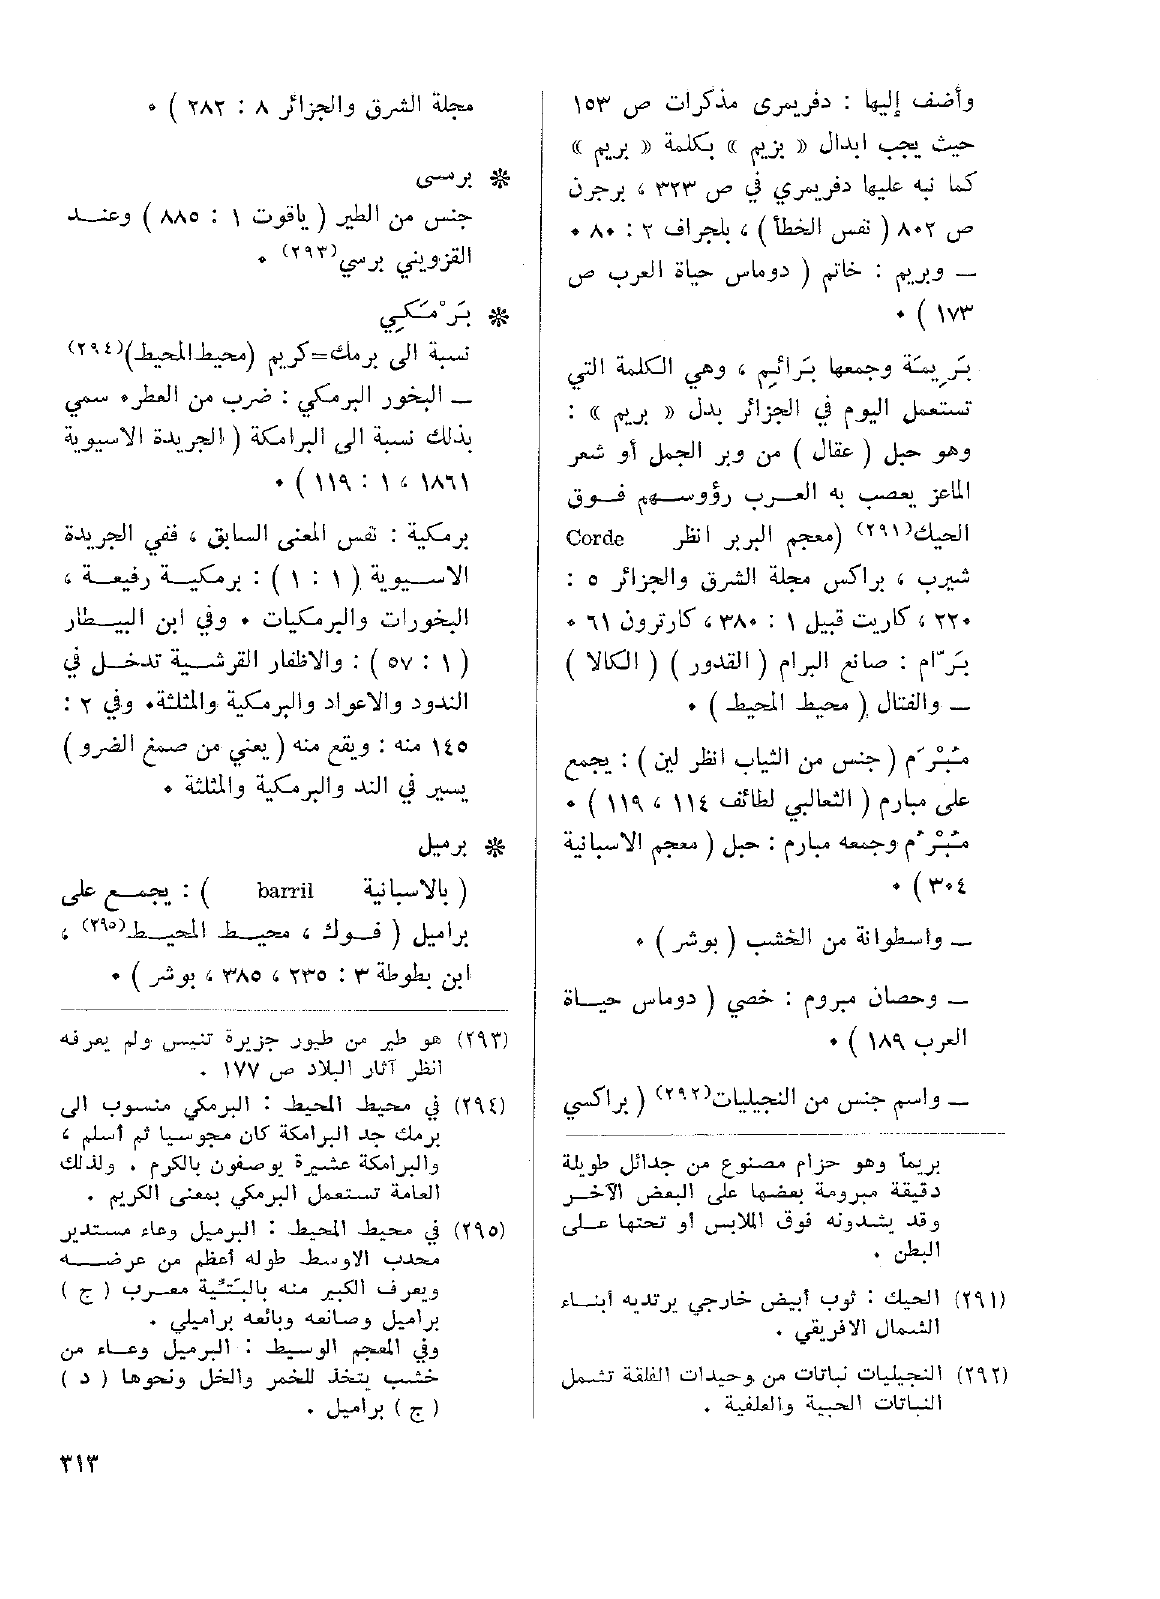 وأضف إليها : دفريمرى مذكرات ص ١٥٣
حيث يجب ابدال « بزيم » بكلمة « بريم »
كما نبه عليها دفريمري في ص ٣٢٣ ، برجرن
ص ٨٠٢ ( نفس الخطأ ) ، بلجراف ٢ : ٨٠ ٠
ــ وبريم : خاتم ( دوماس حياة العرب ص
١٧٣ ) ٠
بَرِيمَة وجمعها بَرائِم ، وهي الكلمة التي
تستعمل اليوم في الجزائر بدل « بريم » :
وهو حبل ( عقال ) من وبر الجمل أو شعر
الماعز يعصب به العرب رؤوسهم فوق
الحيك(٢٩١) (معجم البربر انظر Corde
شيرب ، براكس مجلة الشرق والجزائر ٥ :
٢٢٠ ، كاريت قبيل ١ : ٣٨٠ ، كارترون ٦١ ٠
بَرّام : صانع البرام ( القدور ) ( الكالا )
ــ والفتال ( محيط المحيط ) ٠
مُبْرَم ( جنس من الثياب انظر لين ) : يجمع
على مبارم ( الثعالبي لطائف ١١٤ ، ١١٩ ) ٠
مُبْرُم وجمعه مبارم : حبل ( معجم الاسبانية
٣٠٤ ) ٠
ــ واسطوانة من الخشب ( بوشر ) ٠
ــ وحصان مبروم : خصي ( دوماس حياة
العرب ١٨٩ ) ٠
ــ واسم جنس من النجيليات(٢٩٢) ( براكسي
بريما وهو حزام مصنوع من جدائل طويلة
دقيقة مبرومة بعضها على البعض الآخر
وقد يشدونه فوق الملابس أو تحتها على
البطن .
(٢٩١) الحيك : ثوب أبيض خارجي يرتديه أبناء
الشمال الافريقي .
(٢٩٢) النجيليات نباتات من وحيدات الفلقة تشمل
النباتات الحبية والعلفية .
مجلة الشرق والجزائر ٨ : ٢٨٢ ) ٠
❋ برسى
جنس من الطير ( ياقوت ١ : ٨٨٥ ) وعند
القزويني برسي(٢٩٣) ٠
❋ بَرْمَكِي
نسبة الى برمك=كريم (محيط المحيط)(٢٩٤)
ــ البخور البرمكي : ضرب من العطر٠ سمي
بذلك نسبة الى البرامكة ( الجريدة الاسيوية
١٨٦١ ، ١ : ١١٩ ) ٠
برمكية : نفس المعنى السابق ، ففي الجريدة
الاسيوية ( ١ : ١ ) : برمكية رفيعة ،
البخورات والبرمكيات ٠ وفي ابن البيطار
( ١ : ٥٧ ) : والاظفار القرشية تدخل في
الندود والاعواد والبرمكية والمثلثة٠ وفي ٢ :
١٤٥ منه : ويقع منه ( يعني من صمغ الضرو )
يسير في الند والبرمكية والمثلثة ٠
❋ برميل
( بالاسبانية barril ) : يجمع على
براميل ( فوك ، محيط المحيط(٢٩٥) ،
ابن بطوطة ٣ : ٢٣٥ ، ٣٨٥ ، بوشر ) ٠
(٢٩٣) هو طير من طيور جزيرة تنيس ولم يعرفه
انظر آثار البلاد ص ١٧٧ .
(٢٩٤) في محيط المحيط : البرمكي منسوب الى
برمك جد البرامكة كان مجوسيا ثم أسلم ،
والبرامكة عشيرة يوصفون بالكرم . ولذلك
العامة تستعمل البرمكي بمعنى الكريم .
(٢٩٥) في محيط المحيط : البرميل وعاء مستدير
محدب الاوسط طوله أعظم من عرضه
ويعرف الكبير منه بالبتية معرب ( ج )
براميل وصانعه وبائعه براميلي .
وفي المعجم الوسيط : البرميل وعاء من
خشب يتخذ للخمر والخل ونحوها ( د )
( ج ) براميل .
٣١٣